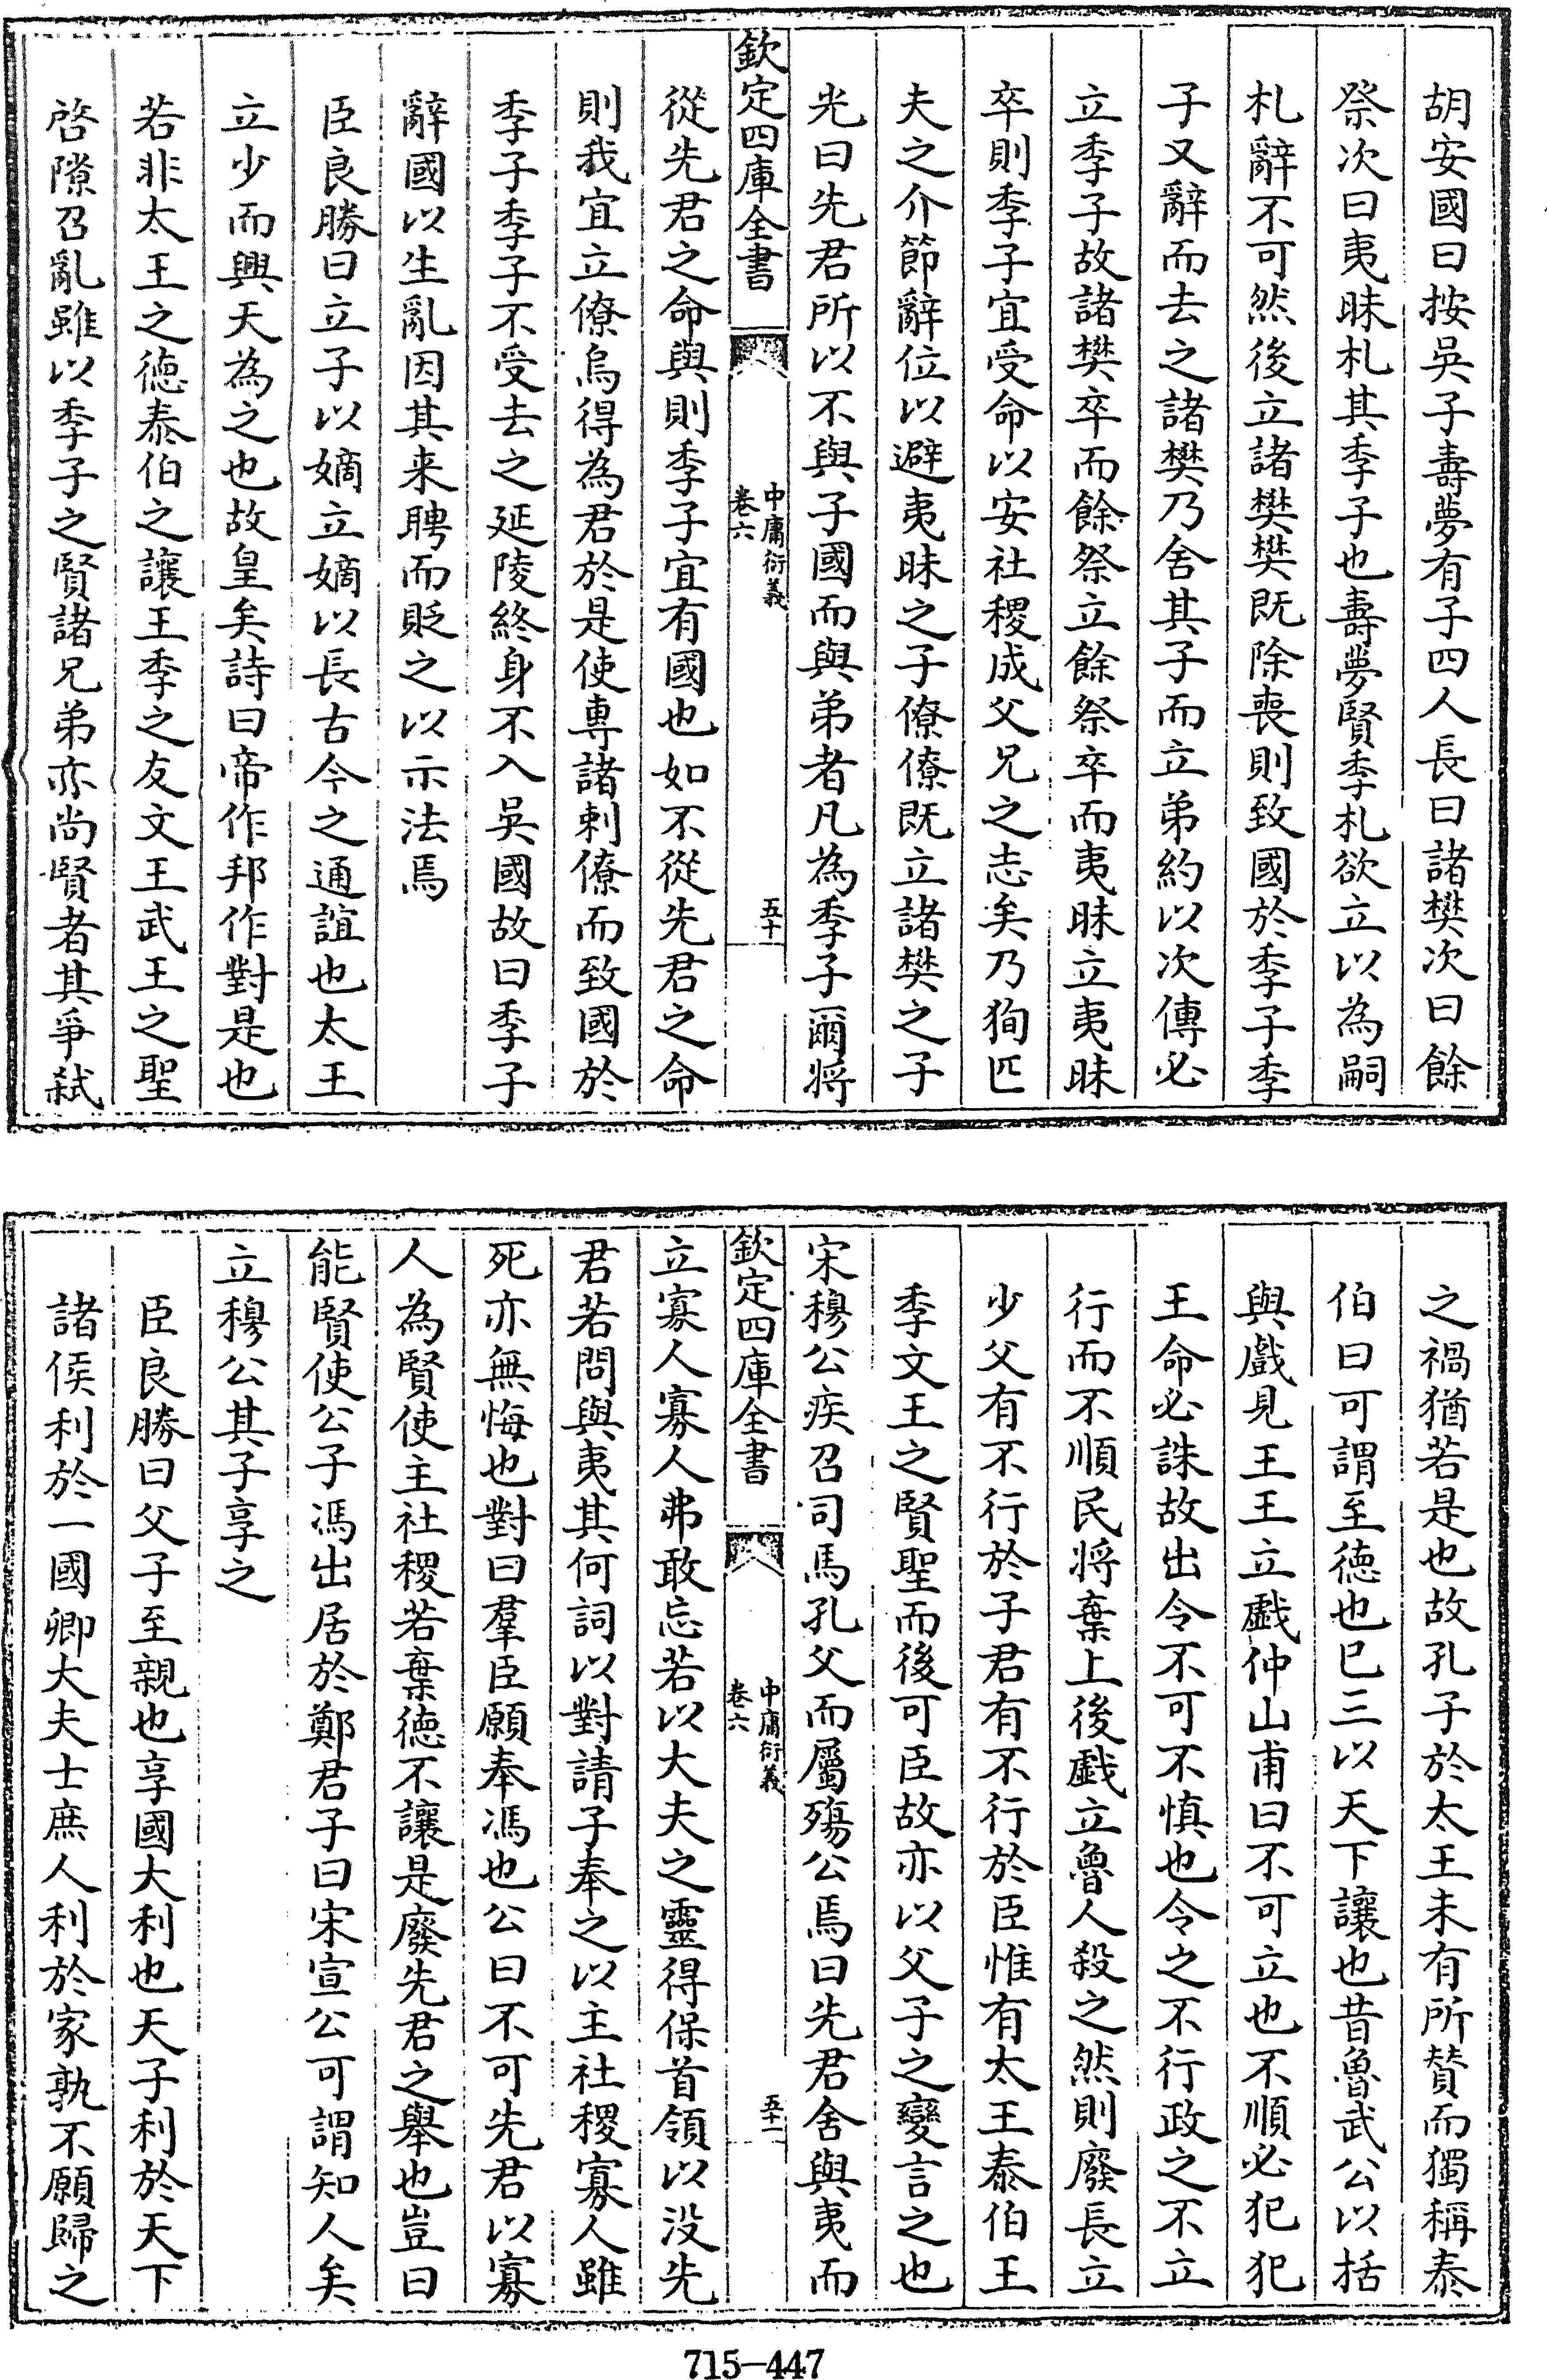 胡安國曰按吳子壽夢有子四人長曰諸樊次曰餘
祭次曰夷昧札其季子也壽夢賢季札欲立以為嗣
札辭不可然後立諸樊樊既除喪則致國於季子季
子又辭而去之諸樊乃舍其子而立弟約以次傳必
立季子故諸樊卒而餘祭立餘祭卒而夷昧立夷昧
卒則季子宜受命以安社稷成父兄之志矣乃狥匹
夫之介節辭位以避夷昧之子僚僚既立諸樊之子
光曰先君所以不與子國而與弟者凡為季子爾将
欽定四庫全書
中庸衍義
卷六
五十
從先君之命與則季子宜有國也如不從先君之命
則我宜立僚烏得為君於是使專諸刺僚而致國於
季子季子不受去之延陵終身不入吳國故曰季子
辭國以生亂因其来聘而貶之以示法焉
臣良勝曰立子以嫡立嫡以長古今之通誼也太王
立少而興天為之也故皇矣詩曰帝作邦作對是也
若非太王之徳泰伯之讓王季之友文王武王之聖
啓隙召亂雖以季子之賢諸兄弟亦尚賢者其爭弑
之禍猶若是也故孔子於太王未有所賛而獨稱泰
伯曰可謂至徳也已三以天下讓也昔魯武公以括
與戲見王王立戯仲山甫曰不可立也不順必犯犯
王命必誅故出令不可不慎也令之不行政之不立
行而不順民将棄上後戯立魯人殺之然則廢長立
少父有不行於子君有不行於臣惟有太王泰伯王
季文王之賢聖而後可臣故亦以父子之變言之也
宋穆公疾召司馬孔父而屬殤公焉曰先君舍與夷而
欽定四庫全書
中庸衍義
卷六
五十一
立寡人寡人弗敢忘若以大夫之靈得保首領以没先
君若問與夷其何詞以對請子奉之以主社稷寡人雖
死亦無悔也對曰羣臣願奉馮也公曰不可先君以寡
人為賢使主社稷若棄徳不讓是廢先君之舉也豈曰
能賢使公子馮出居於鄭君子曰宋宣公可謂知人矣
立穆公其子享之
臣良勝曰父子至親也享國大利也天子利於天下
諸侯利於一國卿大夫士庶人利於家孰不願歸之
715-447